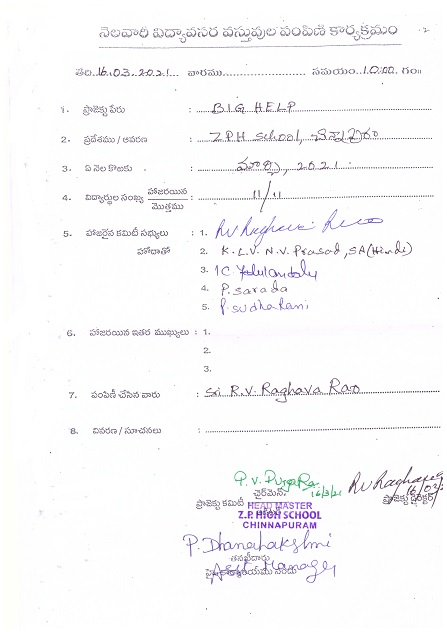 నెలవారీ విద్యావసర వస్తువుల పంపిణీ కార్యక్రమం
తేది..16.03.2021... వారము.................. సమయం..10:00. గం॥
1. ప్రాజెక్టు పేరు : BIG HELP
2. ప్రదేశము / ఆవరణ : ZPH School, చిన్నాపురం
3. ఏ నెల కొఱకు : మార్చి, 2021
4. విద్యార్థుల సంఖ్య హాజరయిన / మొత్తము : 11/11
5. హాజరైన కమిటీ సభ్యులు : 1. RV Raghava Rao
హోదాతో 2. K.L.V.N.V. Prasad, SA(Hindi)
3.
4. P. Sarada
5. P. Sudharani
6. హాజరయిన ఇతర ముఖ్యులు : 1.
2.
3.
7. పంపిణీ చేసిన వారు : Sri R.V. Raghava Rao
8. వివరణ / సూచనలు :
16/3/21 RV Raghava
ప్రాజెక్టు కమిటీ ఛైర్మెన్ ప్రాజెక్టు డైరెక్టర్
HEAD MASTER
Z.P. HIGH SCHOOL
CHINNAPURAM
P. Dhanalakshmi
Manager